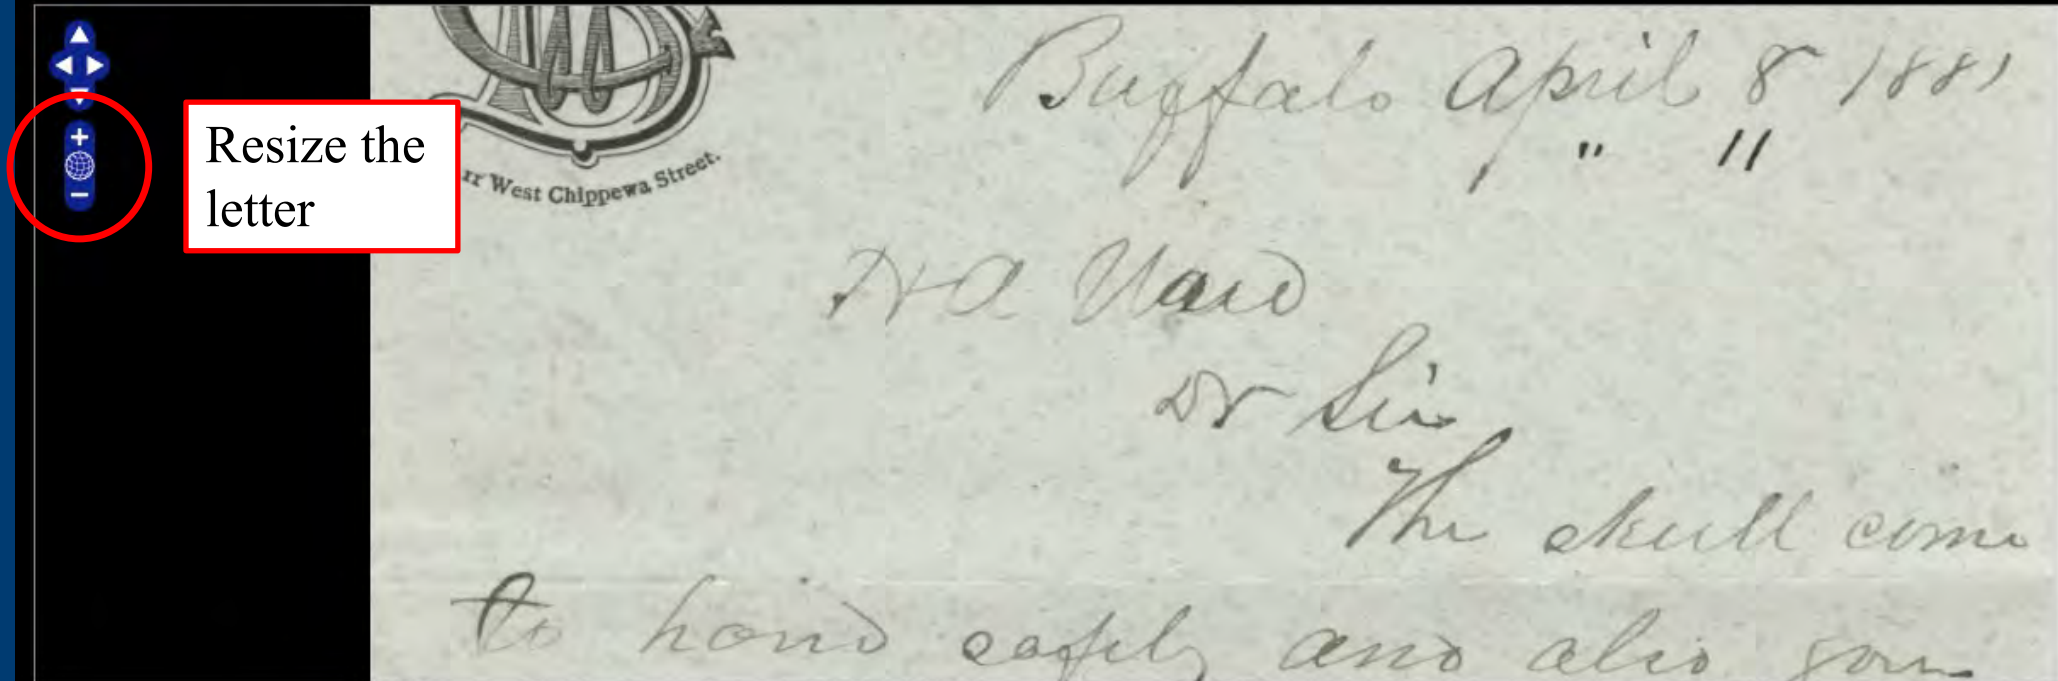 Resize the
letter
West Chippewa Street.
Buffalo April 8 1881
" 11
H A Ward
Dr Sir
The skull come
to hand safely and also your